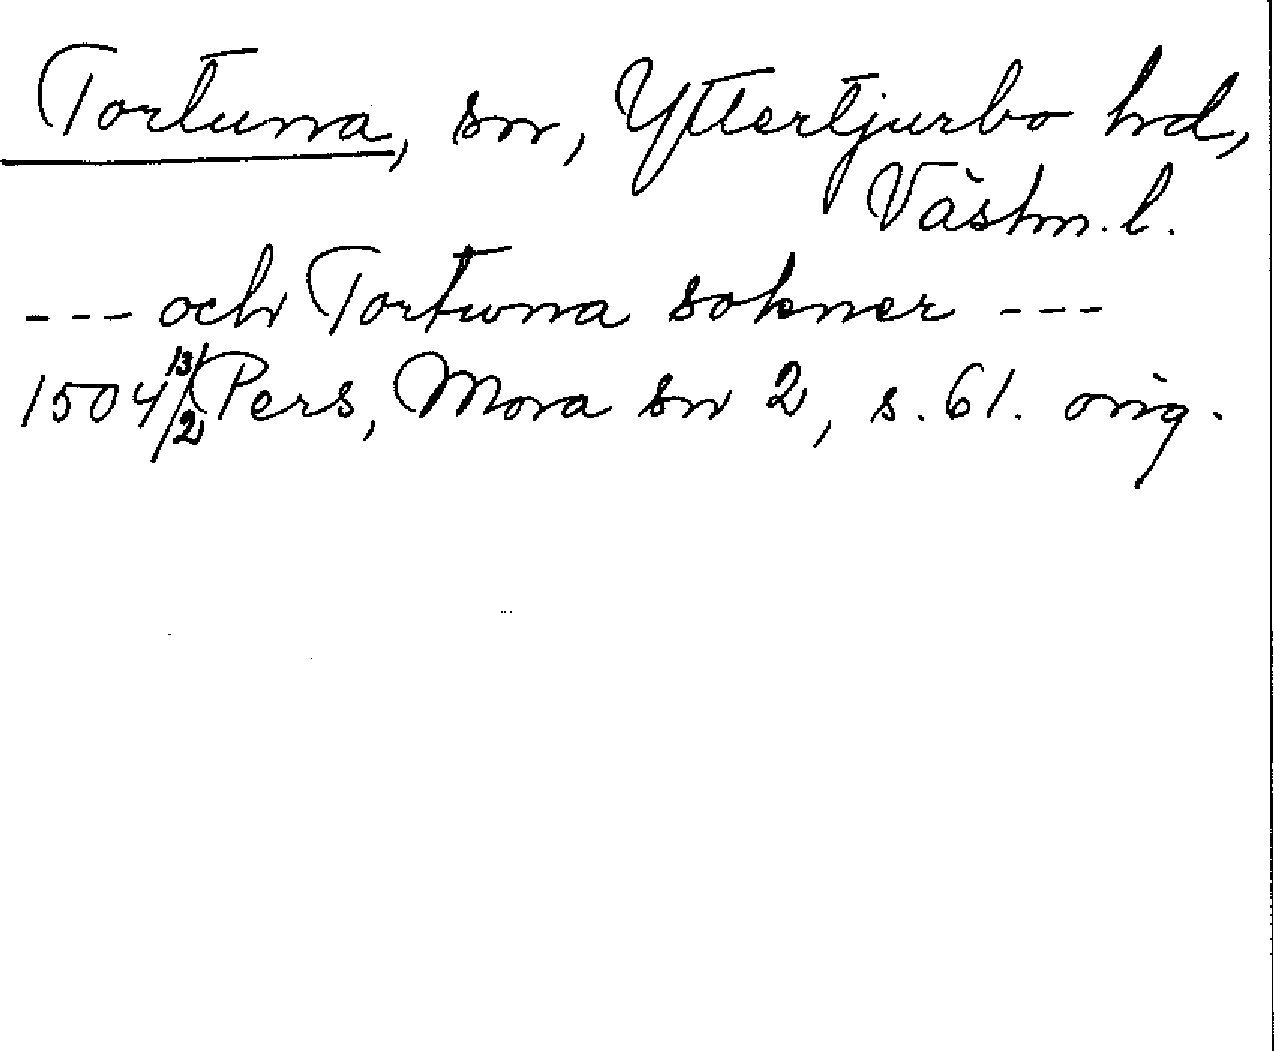 Tortuna, sn, Yttertjurbo hd,
Västm. l.
--- och Tortwna sokner ---
1504 13/2 Pers, Mora sn 2, s. 61. orig.